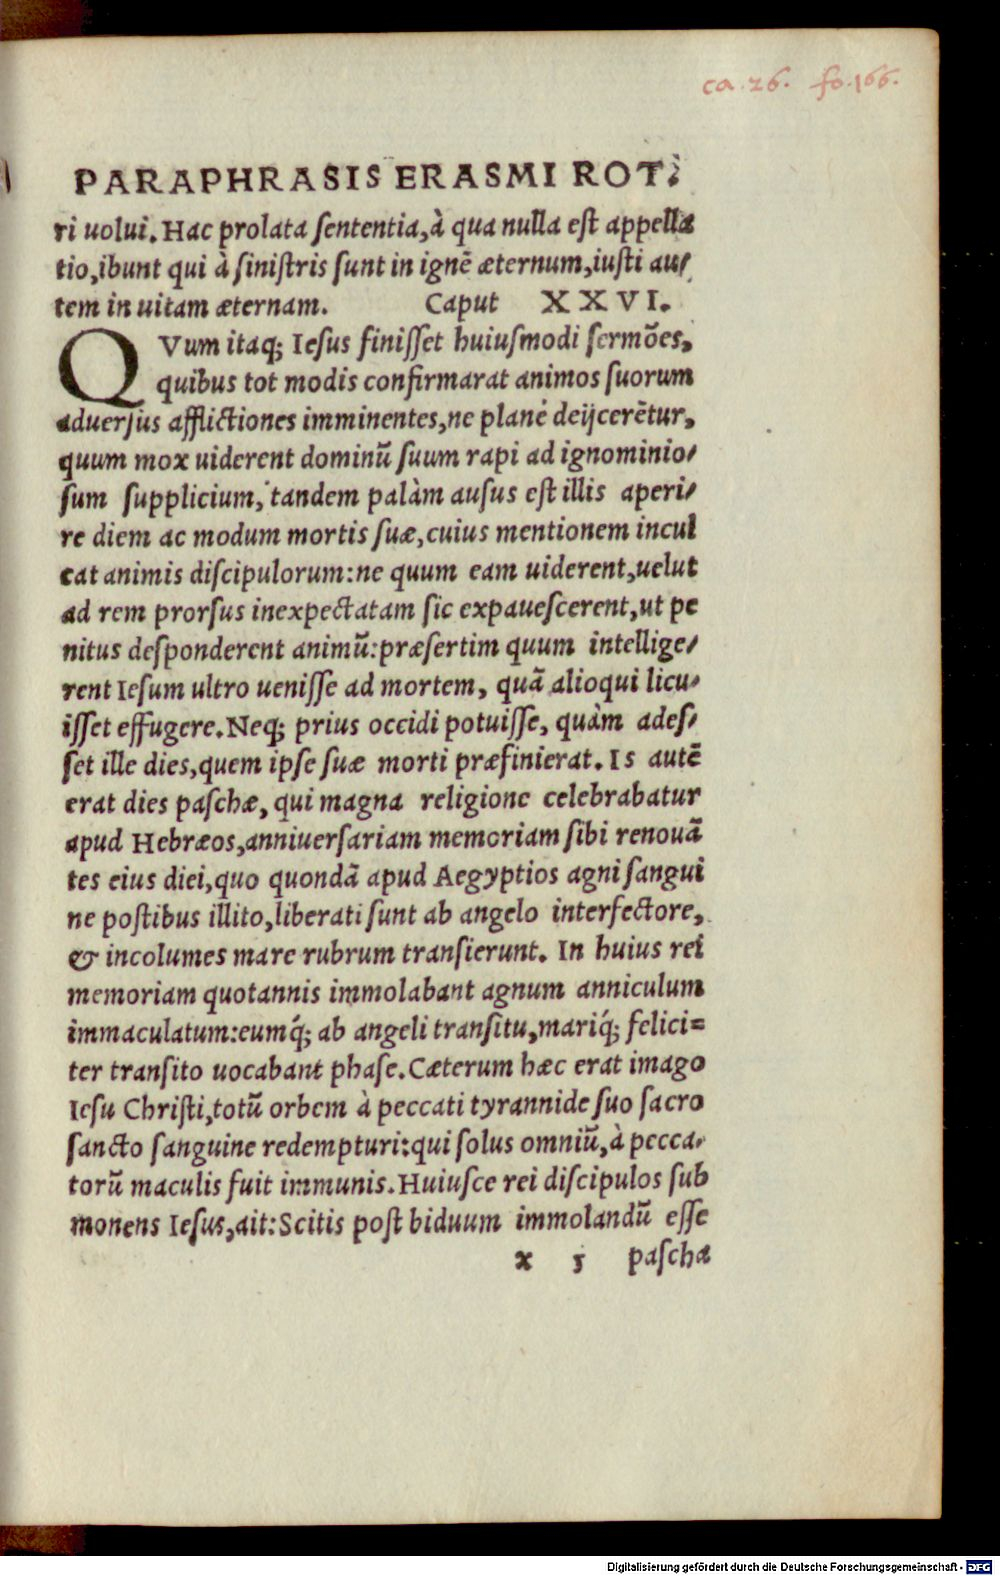 ca. 26. fo. 166.
PARAPHRASIS ERASMI ROT.
ri uolui. Hac prolata sententia, à qua nulla est appella
tio, ibunt qui à sinistris sunt in ignē æternum, iusti au/
tem in uitam æternam. Caput XXVI.
QVum itaq; Iesus finisset huiusmodi sermōes,
quibus tot modis confirmarat animos suorum
aduersus afflictiones imminentes, ne planè deijcerētur,
quum mox uiderent dominū suum rapi ad ignominio/
sum supplicium, tandem palàm ausus est illis aperi/
re diem ac modum mortis suæ, cuius mentionem incul
cat animis discipulorum: ne quum eam uiderent, uelut
ad rem prorsus inexpectatam sic expauescerent, ut pe
nitus desponderent animū: præsertim quum intellige/
rent Iesum ultro uenisse ad mortem, quā alioqui licu/
isset effugere. Neq; prius occidi potuisse, quàm ades/
set ille dies, quem ipse suæ morti præfinierat. Is autē
erat dies paschæ, qui magna religione celebrabatur
apud Hebræos, anniuersariam memoriam sibi renouā
tes eius diei, quo quondā apud Aegyptios agni sangui
ne postibus illito, liberati sunt ab angelo interfectore,
& incolumes mare rubrum transierunt. In huius rei
memoriam quotannis immolabant agnum anniculum
immaculatum: eumq́; ab angeli transitu, mariq́; felici=
ter transito uocabant phase. Cæterum hæc erat imago
Iesu Christi, totū orbem à peccati tyrannide suo sacro
sancto sanguine redempturi: qui solus omniū, à pecca/
torū maculis fuit immunis. Huiusce rei discipulos sub
monens Iesus, ait: Scitis post biduum immolandū esse
x 5 pascha
Digitalisierung gefördert durch die Deutsche Forschungsgemeinschaft - DFG